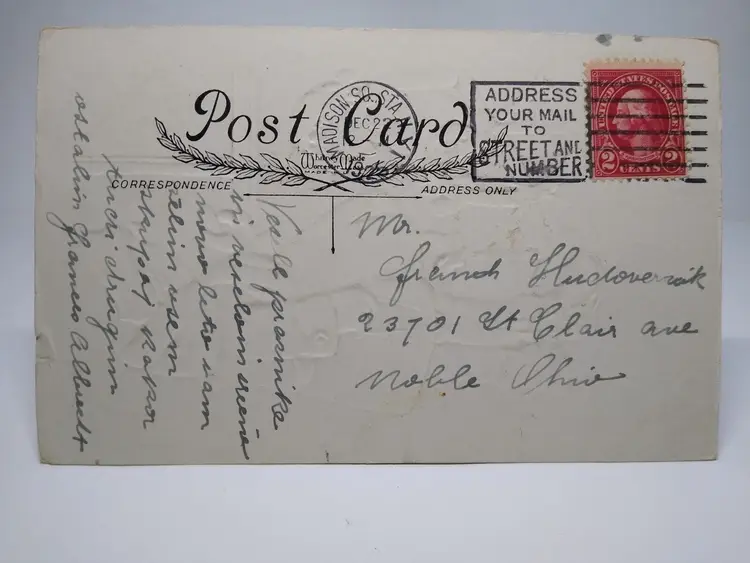 Post Card
MADISON SQ. STA.
DEC 22
ADDRESS
YOUR MAIL
TO
STREET AND
NUMBER
UNITED STATES POSTAGE
2 CENTS 2
Whitney Made
Worcester, Mass
MADE IN
CORRESPONDENCE
ADDRESS ONLY
Mr.
Frank Hudovernik
23701 St Clair ave
Noble Ohio
Vesele praznike
in veselo
novo leto vam
želim vsem
skupaj kakor
tudi drugim
ostalim Frances